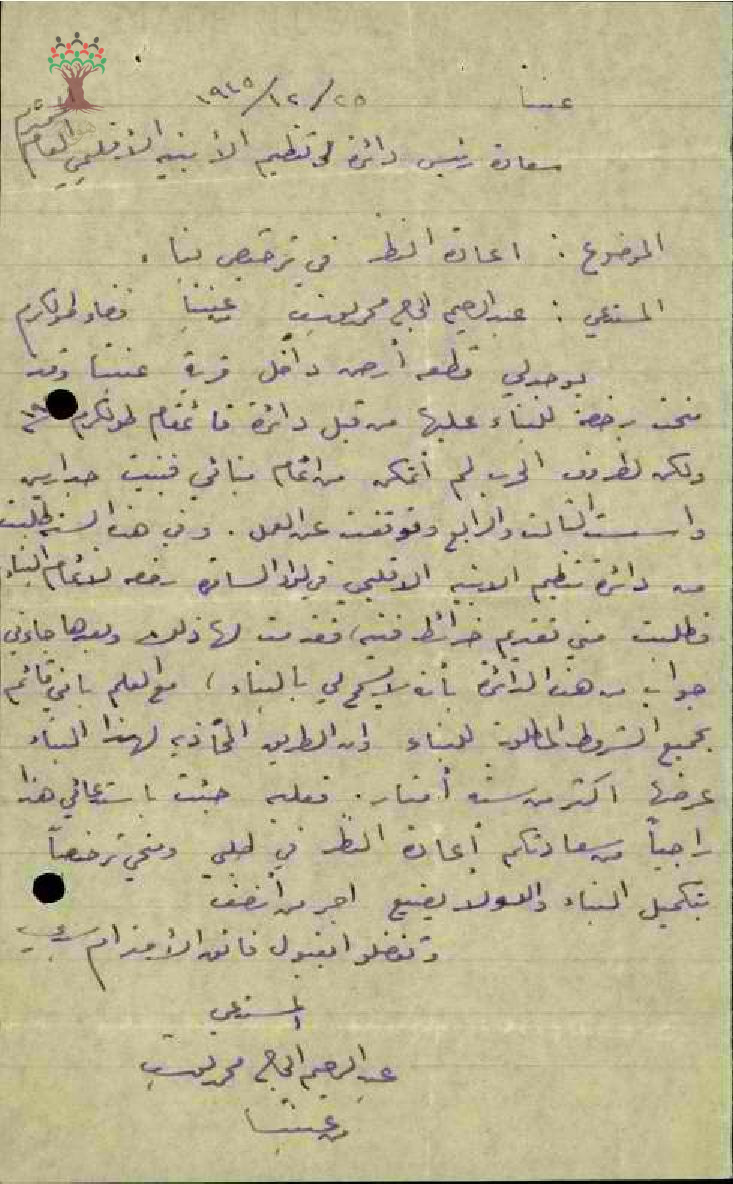 عنبتا ٢٥/١٢/١٩٤٥
سعادة رئيس دائرة تنظيم الأبنية الأقليمي العام المحترم
الموضوع : اعادة النظر في ترخيص بناء .
المستدعي : عبد الرحيم الحاج محمد عنبتا قضاء طولكرم
يوجد لي قطعة أرض داخل قرية عنبتا وقد
منحت رخصة للبناء عليها من قبل دائرة قائمقام طولكرم
ولكن لظروف الحرب لم أتمكن من اتمام بنائي فبنيت جدارين
واسست الثالث والرابع وتوقفت عن العمل . وفي هذه السنة طلبت
من دائرة تنظيم الابنية الاقليمي في لواء السامرة رخصة لاتمام البناء
فطلبت مني تقديم خرائط فنية، فقدمت لها ذلك وبعدها جاءني
جواب من هذه الدائرة بأنه لا يسمح لي بالبناء ، مع العلم بانني قائم
بجميع الشروط المطلوبة للبناء وان الطريق المحاذيه لهذا البناء
عرضها اكثر من ستة أمتار . فعليه جئت باستدعائي هذا
راجياً من سعادتكم أعادة النظر في طلبي ومنحي ترخيصاً
بتكميل البناء والله لا يضيع اجر من أنصف
وتفضلوا بقبول فائق الأحترام سيدي
المستدعي
عبد الرحيم الحاج محمد
من عنبتا